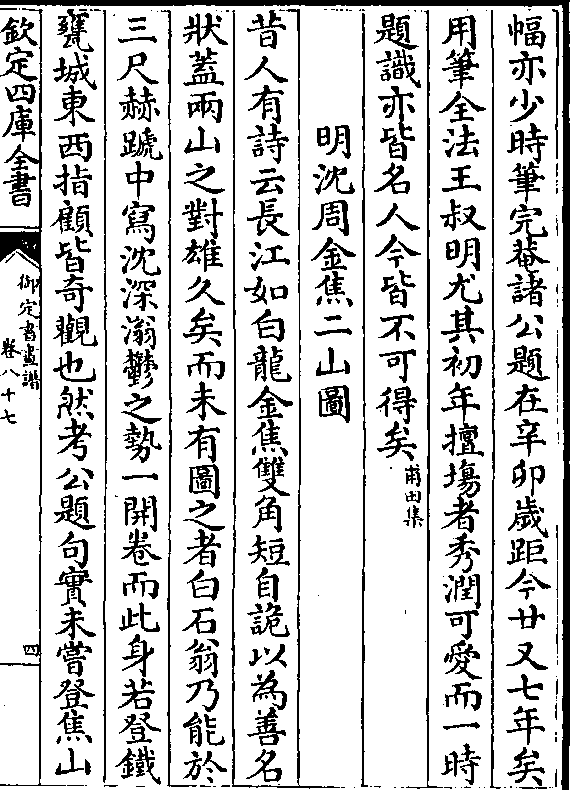 幅亦少時筆完菴諸公題在辛卯歲距今廿又七年矣
用筆全法王叔明尤其初年擅塲者秀潤可愛而一時
題識亦皆名人今皆不可得矣甫田集
明沈周金焦二山圖
昔人有詩云長江如白龍金焦雙角短自詭以為善名
狀蓋兩山之對雄久矣而未有圖之者白石翁乃能於
三尺赫蹏中寫沈深滃鬱之勢一開卷而此身若登鐵
甕城東西指顧皆奇觀也然考公題句實未嘗登焦山
欽定四庫全書
御定書畫譜
卷八十七
四